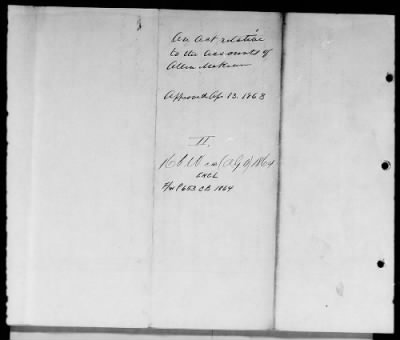 An Act relative
to the accounts of
Allen McKean
Approved Ap 13. 1868
II.
1864
ENCL
653 CB 1864